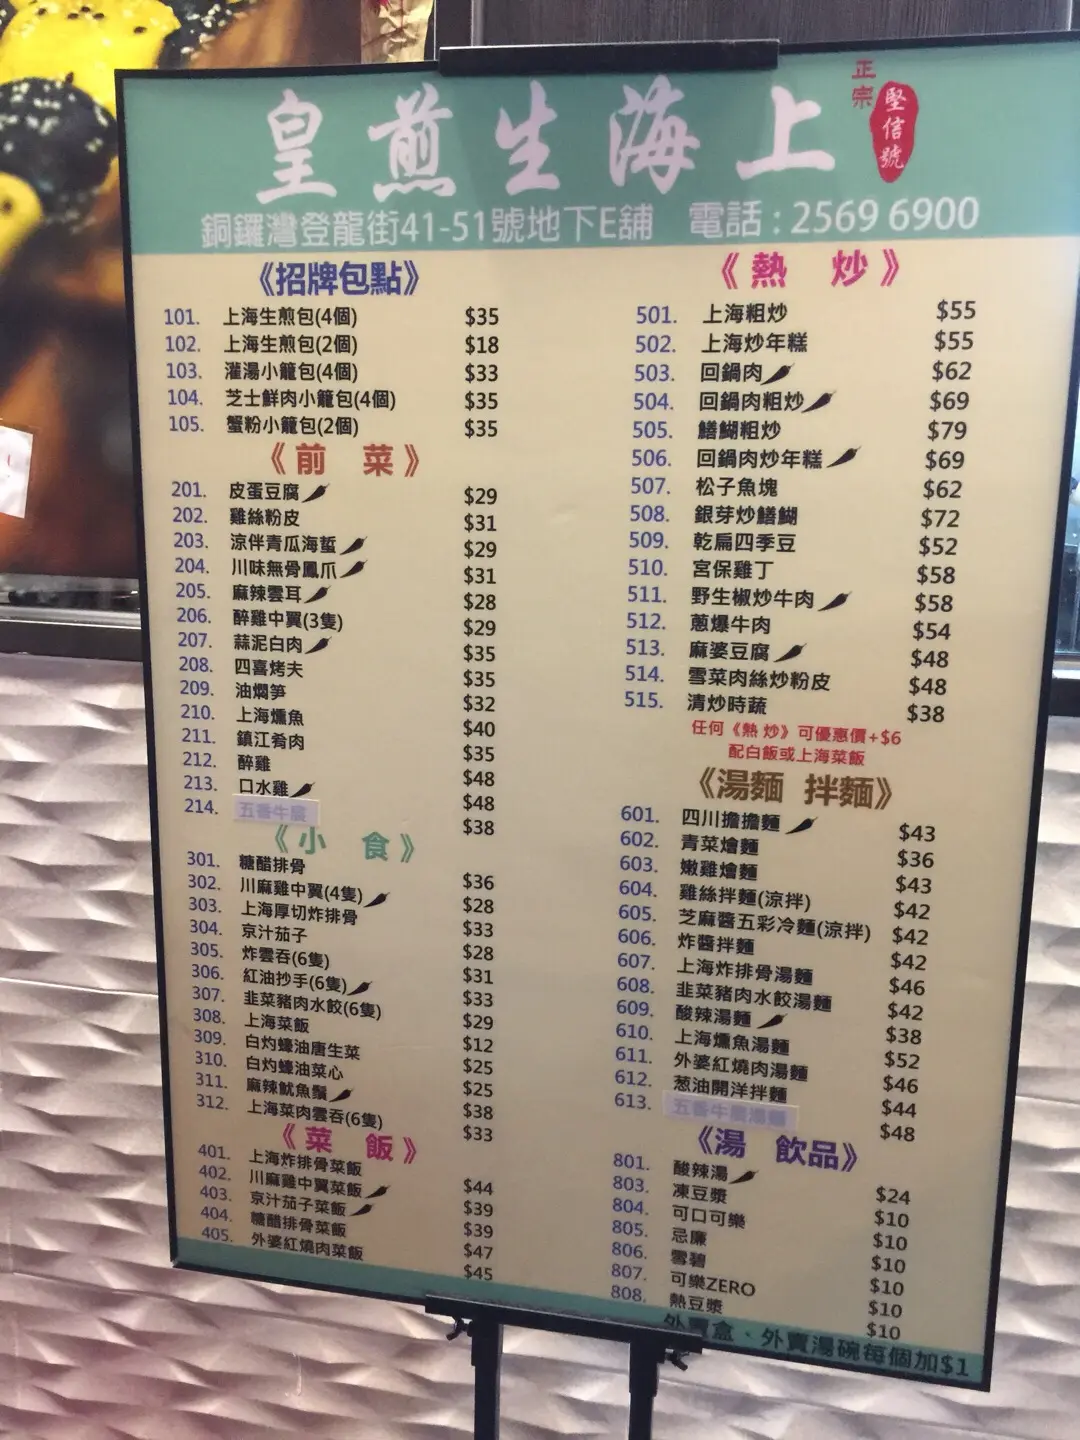 皇煎生海上
正宗
堅信號
銅鑼灣登龍街41-51號地下E舖 電話:2569 6900
《招牌包點》
101. 上海生煎包(4個) $35
102. 上海生煎包(2個) $18
103. 灌湯小籠包(4個) $33
104. 芝士鮮肉小籠包(4個) $35
105. 蟹粉小籠包(2個) $35
《前 菜》
201. 皮蛋豆腐 $29
202. 雞絲粉皮 $31
203. 涼伴青瓜海蜇 $29
204. 川味無骨鳳爪 $31
205. 麻辣雲耳 $28
206. 醉雞中翼(3隻) $29
207. 蒜泥白肉 $35
208. 四喜烤夫 $35
209. 油燜笋 $32
210. 上海燻魚 $40
211. 鎮江肴肉 $35
212. 醉雞 $48
213. 口水雞 $48
214. 五香牛𦟌 $38
《小 食》
301. 糖醋排骨 $36
302. 川麻雞中翼(4隻) $28
303. 上海厚切炸排骨 $33
304. 京汁茄子 $28
305. 炸雲吞(6隻) $31
306. 紅油抄手(6隻) $33
307. 韭菜豬肉水餃(6隻) $29
308. 上海菜飯 $12
309. 白灼蠔油唐生菜 $25
310. 白灼蠔油菜心 $25
311. 麻辣魷魚鬚 $38
312. 上海菜肉雲吞(6隻) $33
《菜 飯》
401. 上海炸排骨菜飯 $44
402. 川麻雞中翼菜飯 $39
403. 京汁茄子菜飯 $39
404. 糖醋排骨菜飯 $47
405. 外婆紅燒肉菜飯 $45
《熱 炒》
501. 上海粗炒 $55
502. 上海炒年糕 $55
503. 回鍋肉 $62
504. 回鍋肉粗炒 $69
505. 鱔鰗粗炒 $79
506. 回鍋肉炒年糕 $69
507. 松子魚塊 $62
508. 銀芽炒鱔鰗 $72
509. 乾扁四季豆 $52
510. 宮保雞丁 $58
511. 野生椒炒牛肉 $58
512. 蔥爆牛肉 $54
513. 麻婆豆腐 $48
514. 雪菜肉絲炒粉皮 $48
515. 清炒時蔬 $38
任何《熱 炒》可優惠價+$6
配白飯或上海菜飯
《湯麵 拌麵》
601. 四川擔擔麵 $43
602. 青菜燴麵 $36
603. 嫩雞燴麵 $43
604. 雞絲拌麵(涼拌) $42
605. 芝麻醬五彩冷麵(涼拌) $42
606. 炸醬拌麵 $42
607. 上海炸排骨湯麵 $46
608. 韭菜豬肉水餃湯麵 $42
609. 酸辣湯麵 $38
610. 上海燻魚湯麵 $52
611. 外婆紅燒肉湯麵 $46
612. 葱油開洋拌麵 $44
613. 五香牛𦟌湯麵 $48
《湯 飲品》
801. 酸辣湯 $24
803. 凍豆漿 $10
804. 可口可樂 $10
805. 忌廉 $10
806. 雪碧 $10
807. 可樂ZERO $10
808. 熱豆漿 $10
外賣盒、外賣湯碗每個加$1